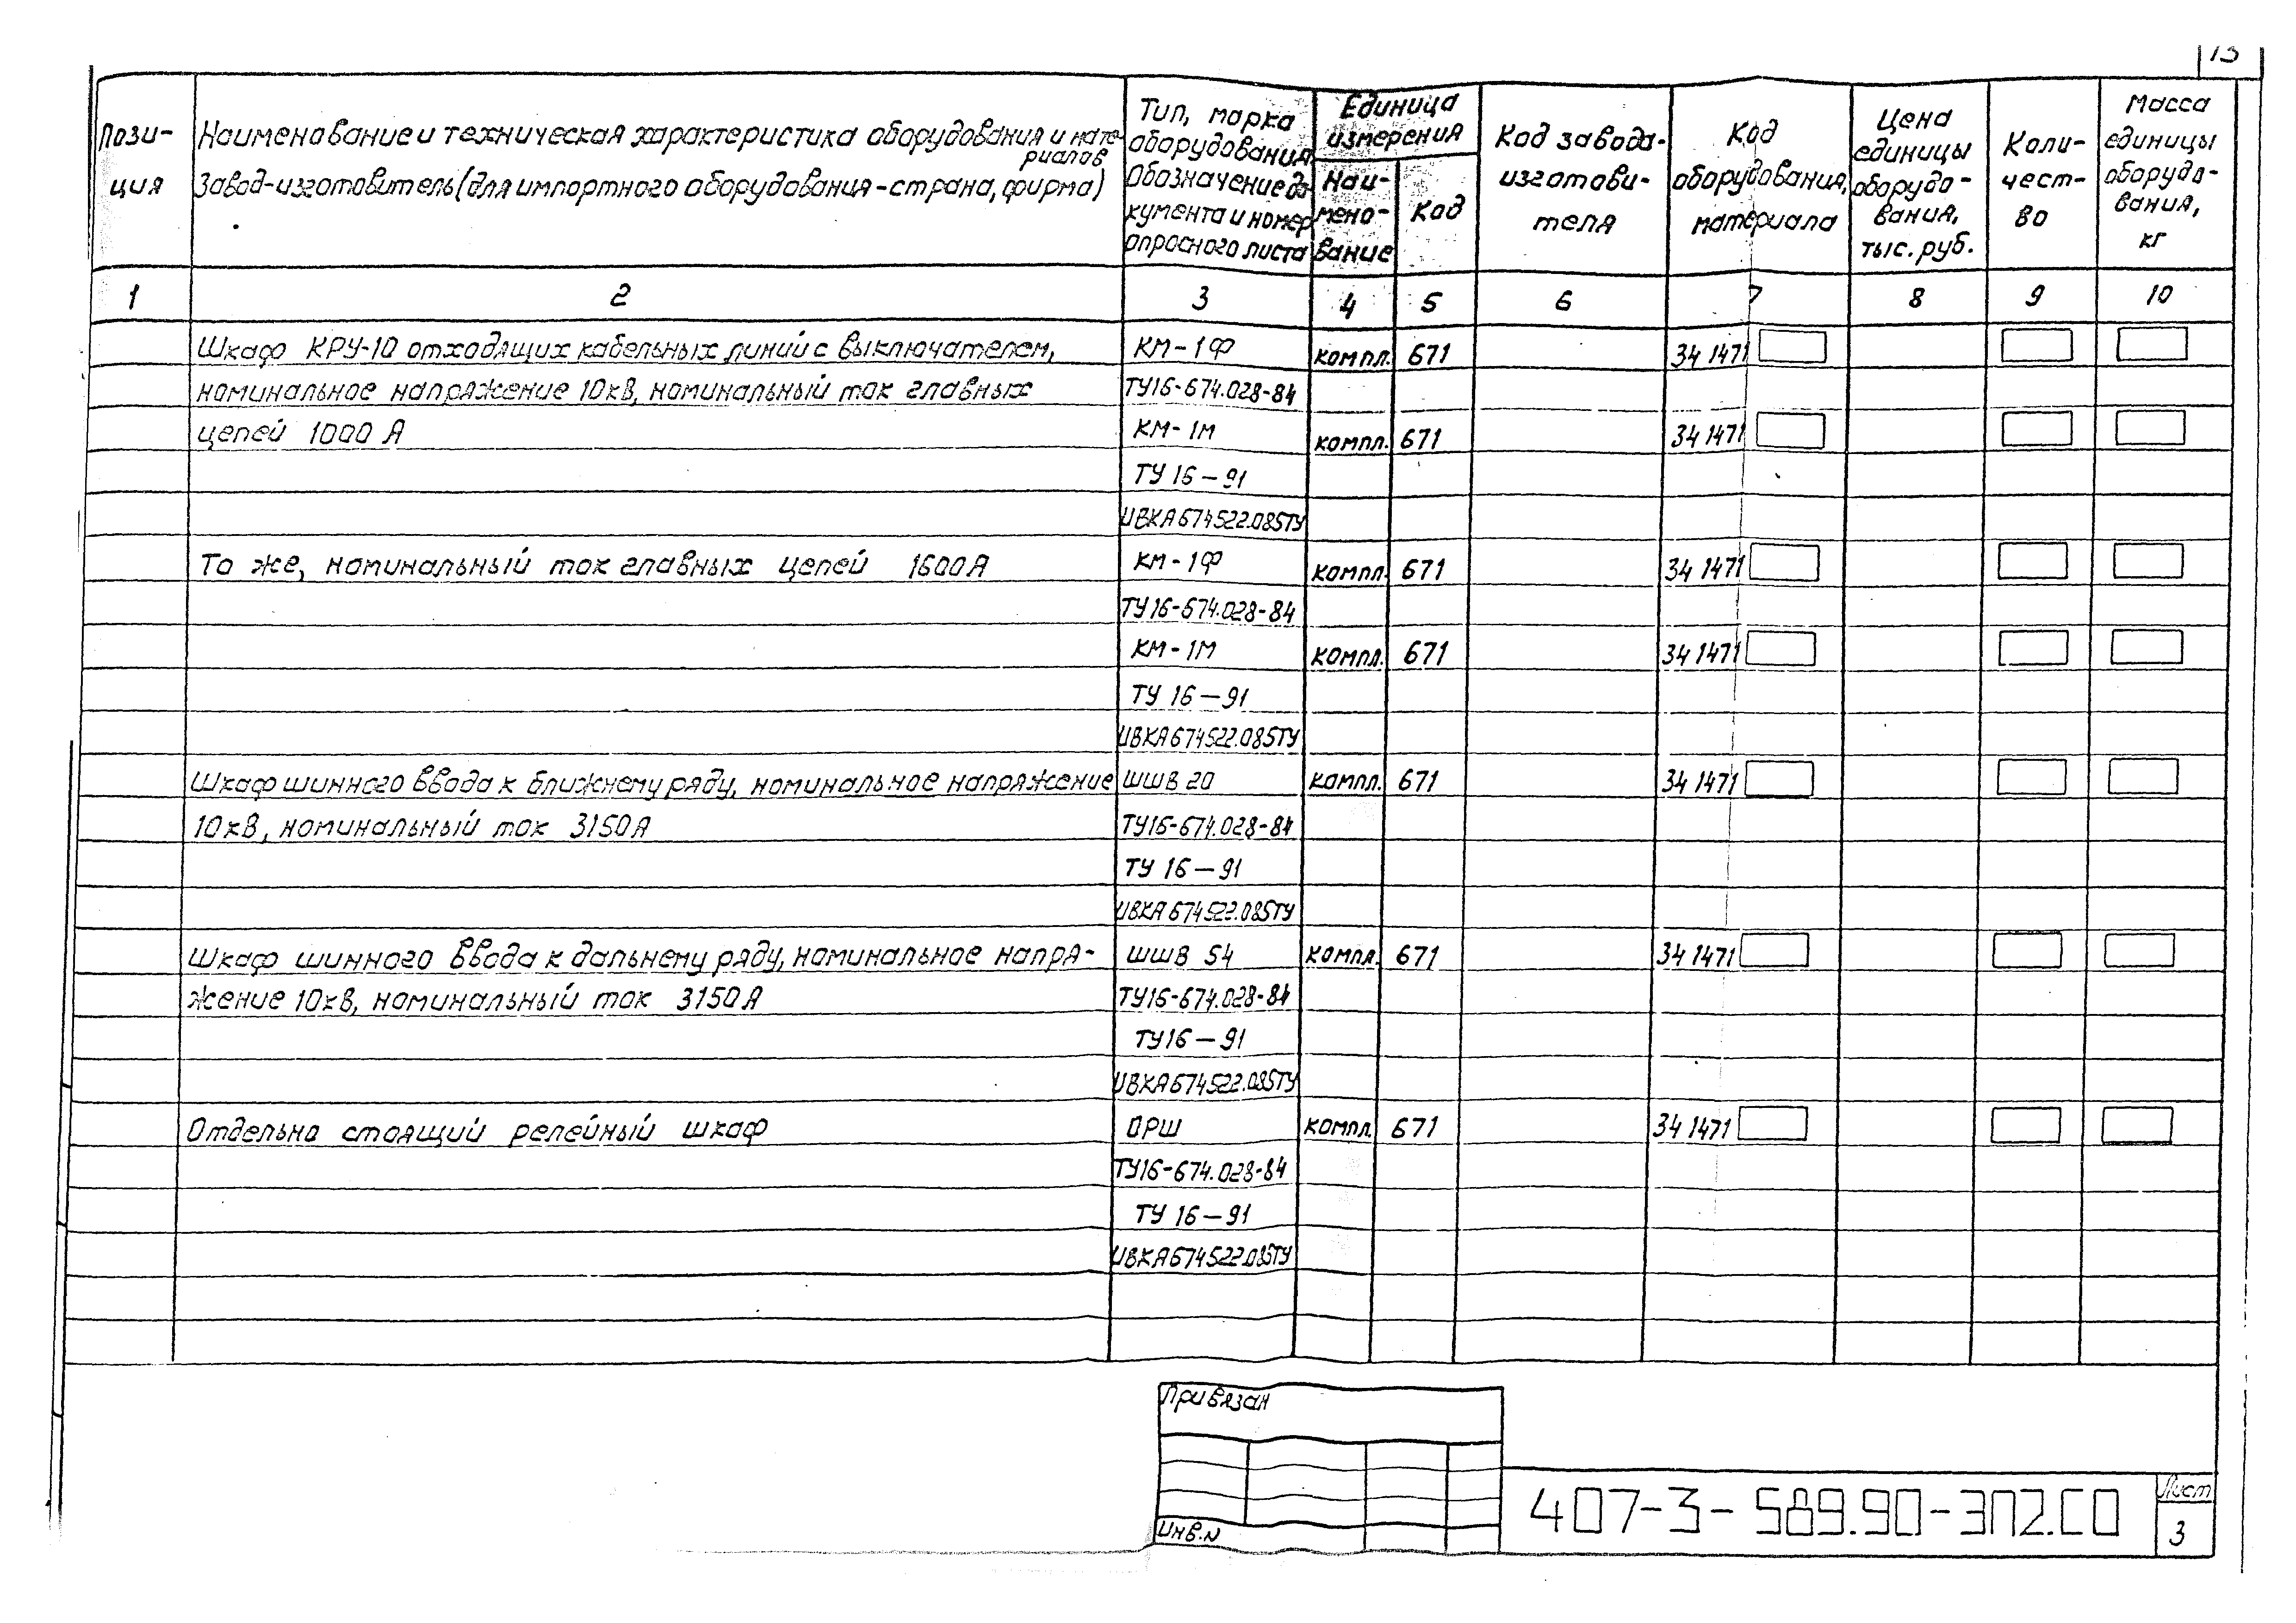 13
Пози-
ция
Наименование и техническая характеристика оборудования и мате-
риалов
Завод-изготовитель (для импортного оборудования - страна, фирма)
Тип, марка
оборудования
Обозначение до-
кумента и номер
опросного листа
Единица
измерения
Наи-
мено-
вание
Код
Код завода-
изготови-
теля
Код
оборудования,
материала
Цена
единицы
оборудо-
вания,
тыс. руб.
Коли-
чест-
во
Масса
единицы
оборудо-
вания,
кг
1 2 3 4 5 6 7 8 9 10
Шкаф КРУ-10 отходящих кабельных линий с выключателем, КМ-1Ф компл. 671 34 1471
номинальное напряжение 10кВ, номинальный ток главных ТУ16-674.028-84
цепей 1000 А КМ-1М компл. 671 34 1471
ТУ 16-91
ИВКА674522.085ТУ
То же, номинальный ток главных цепей 1600А КМ-1Ф компл. 671 34 1471
ТУ16-674.028-84
КМ-1М компл. 671 34 1471
ТУ 16-91
ИВКА674522.085ТУ
Шкаф шинного ввода к ближнему ряду, номинальное напряжение ШШВ 20 компл. 671 34 1471
10кВ, номинальный ток 3150А ТУ16-674.028-84
ТУ 16-91
ИВКА674522.085ТУ
Шкаф шинного ввода к дальнему ряду, номинальное напря- ШШВ 54 компл. 671 34 1471
жение 10кВ, номинальный ток 3150А ТУ16-674.028-84
ТУ16-91
ИВКА674522.085ТУ
Отдельно стоящий релейный шкаф ОРШ компл. 671 34 1471
ТУ16-674.028-84
ТУ 16-91
ИВКА674522.085ТУ
Привязан
Инв.N
407-3-589.90-ЭП2.СО
Лист
3